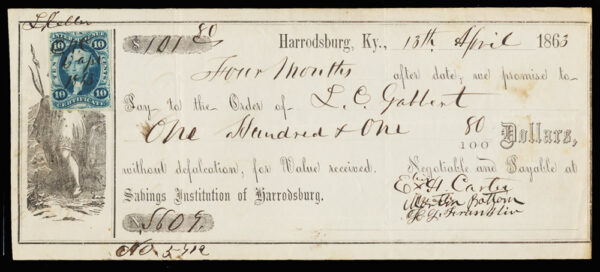 $101 80
Harrodsburg, Ky., 13th April 1863
Four Months after date, we promise to
Pay to the Order of L. C. Gabbert
One Hundred & One 80/100 Dollars,
without defalcation, for Value received. Negotiable and Payable at
Savings Institution of Harrodsburg.
Carter
Bottom
Franklin
$609.
No.
10 10
10 CERTIFICATE 10